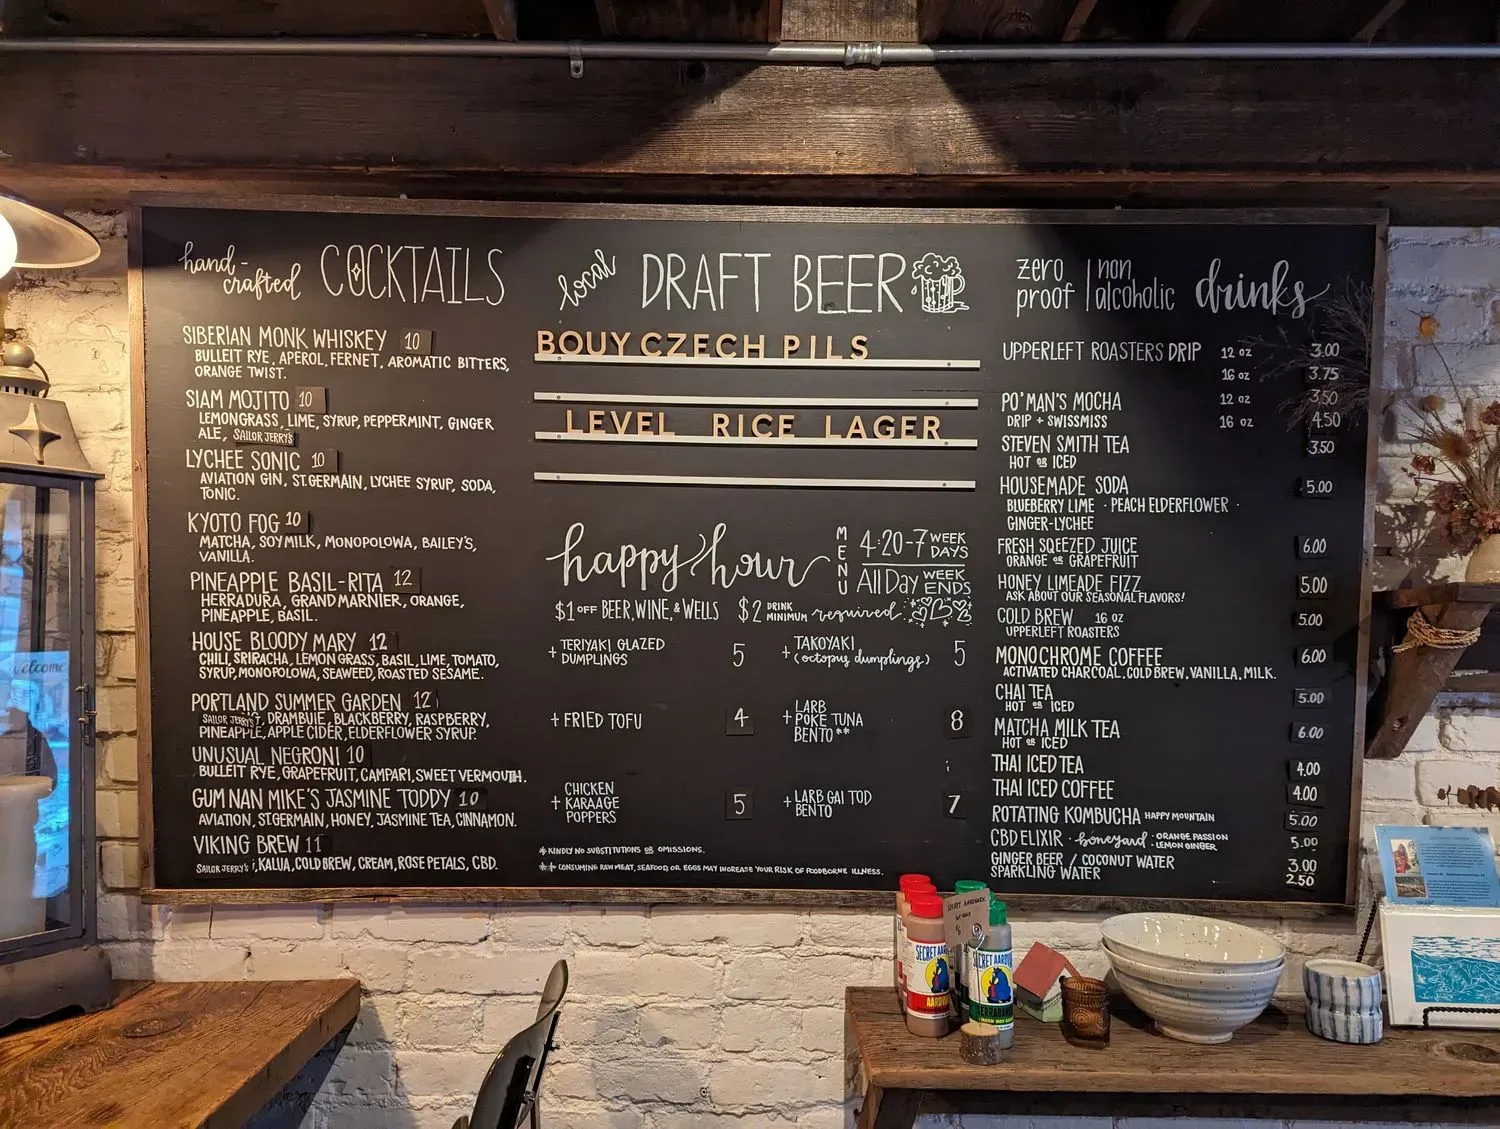 hand-crafted COCKTAILS
SIBERIAN MONK WHISKEY 10
BULLEIT RYE, APEROL, FERNET, AROMATIC BITTERS,
ORANGE TWIST.
SIAM MOJITO 10
LEMONGRASS, LIME, SYRUP, PEPPERMINT, GINGER
ALE, SAILOR JERRY'S
LYCHEE SONIC 10
AVIATION GIN, ST.GERMAIN, LYCHEE SYRUP, SODA,
TONIC.
KYOTO FOG 10
MATCHA, SOYMILK, MONOPOLOWA, BAILEY'S,
VANILLA.
PINEAPPLE BASIL-RITA 12
HERRADURA, GRAND MARNIER, ORANGE,
PINEAPPLE, BASIL.
HOUSE BLOODY MARY 12
CHILI, SRIRACHA, LEMON GRASS, BASIL, LIME, TOMATO,
SYRUP, MONOPOLOWA, SEAWEED, ROASTED SESAME.
PORTLAND SUMMER GARDEN 12
SAILOR JERRY'S, DRAMBUIE, BLACKBERRY, RASPBERRY,
PINEAPPLE, APPLE CIDER, ELDERFLOWER SYRUP.
UNUSUAL NEGRONI 10
BULLEIT RYE, GRAPEFRUIT, CAMPARI, SWEET VERMOUTH.
GUM NAN MIKE'S JASMINE TODDY 10
AVIATION, ST.GERMAIN, HONEY, JASMINE TEA, CINNAMON.
VIKING BREW 11
SAILOR JERRY'S, KALUA, COLD BREW, CREAM, ROSE PETALS, CBD.
local DRAFT BEER
BOUY CZECH PILS
LEVEL RICE LAGER
happy hour MENU
4:20-7 WEEK DAYS
All Day WEEK ENDS
$1 OFF BEER, WINE, & WELLS $2 DRINK MINIMUM required
+ TERIYAKI GLAZED DUMPLINGS 5
+ TAKOYAKI (octopus dumplings) 5
+ FRIED TOFU 4
+ LARB POKE TUNA BENTO** 8
+ CHICKEN KARAAGE POPPERS 5
+ LARB GAI TOD BENTO 7
* KINDLY NO SUBSTITUTIONS OR OMISSIONS.
** CONSUMING RAW MEAT, SEAFOOD, OR EGGS MAY INCREASE YOUR RISK OF FOODBORNE ILLNESS.
zero proof | non alcoholic drinks
UPPERLEFT ROASTERS DRIP 12 OZ 3.00
16 OZ 3.75
PO'MAN'S MOCHA 12 OZ 3.50
DRIP + SWISSMISS 16 OZ 4.50
STEVEN SMITH TEA 3.50
HOT OR ICED
HOUSEMADE SODA 5.00
BLUEBERRY LIME · PEACH ELDERFLOWER ·
GINGER-LYCHEE
FRESH SQEEZED JUICE 6.00
ORANGE OR GRAPEFRUIT
HONEY LIMEADE FIZZ 5.00
ASK ABOUT OUR SEASONAL FLAVORS!
COLD BREW 16 OZ 5.00
UPPERLEFT ROASTERS
MONOCHROME COFFEE 6.00
ACTIVATED CHARCOAL, COLD BREW, VANILLA, MILK.
CHAI TEA 5.00
HOT OR ICED
MATCHA MILK TEA 6.00
HOT OR ICED
THAI ICED TEA 4.00
THAI ICED COFFEE 4.00
ROTATING KOMBUCHA HAPPY MOUNTAIN 5.00
CBD ELIXIR · boneyard · ORANGE PASSION · LEMON GINGER 5.00
GINGER BEER / COCONUT WATER 3.00
SPARKLING WATER 2.50
welcome
SECRET AARDVARK